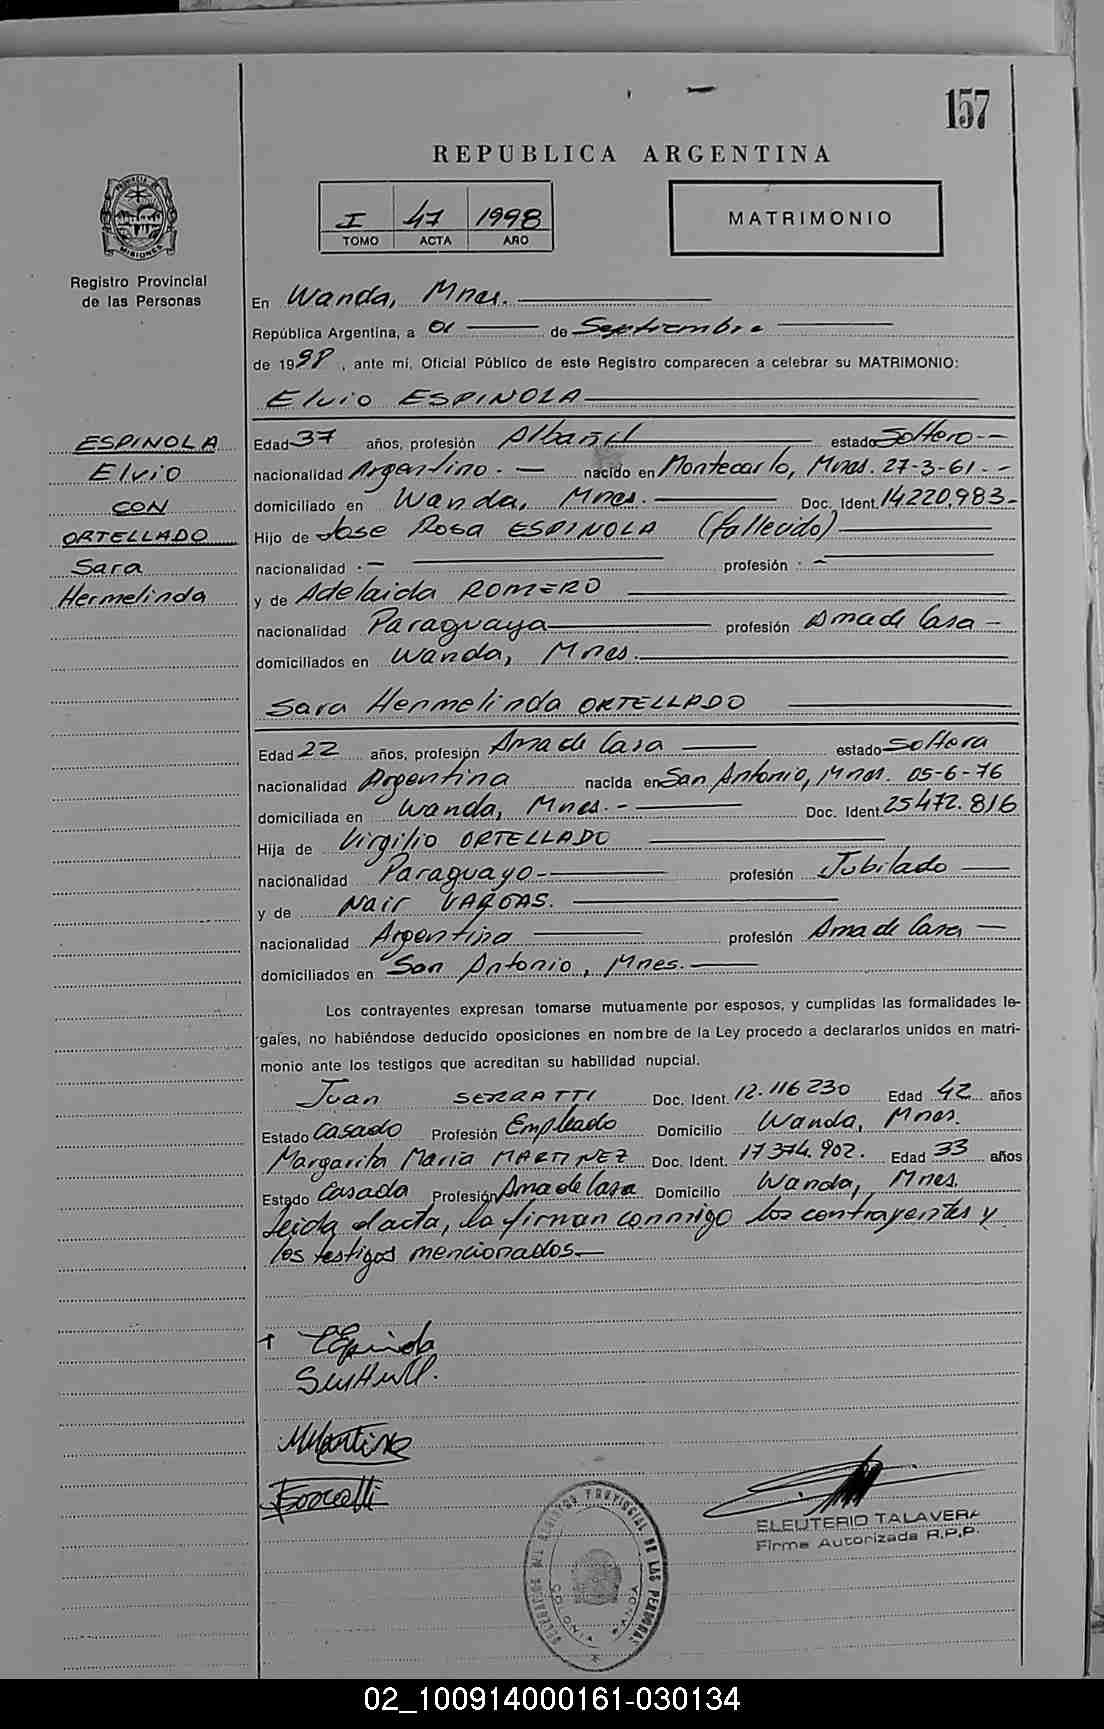 157
REPUBLICA ARGENTINA
PROVINCIA DE MISIONES
Registro Provincial
de las Personas
I 47 1998
TOMO ACTA AÑO
MATRIMONIO
En Wanda, Mnes.
República Argentina, a 01 de Septiembre
de 1998, ante mí, Oficial Público de este Registro comparecen a celebrar su MATRIMONIO:
Elvio ESPINOLA
ESPINOLA
Elvio
CON
ORTELLADO
Sara
Hermelinda
Edad 37 años, profesión Albañil estado Soltero --
nacionalidad Argentino. - nacido en Montecarlo, Mnes. 27-3-61 - -
domiciliado en Wanda, Mnes. Doc. Ident. 14220.983 -
Hijo de Jose Rosa ESPINOLA (fallecido)
nacionalidad - - profesión - -
y de Adelaida ROMERO
nacionalidad Paraguaya profesión Ama de Casa -
domiciliados en Wanda, Mnes.
Sara Hermelinda ORTELLADO
Edad 22 años, profesión Ama de Casa estado Soltera
nacionalidad Argentina nacida en San Antonio, Mnes. 05-6-76
domiciliada en Wanda, Mnes. - Doc. Ident. 25472.816
Hija de Virgilio ORTELLADO
nacionalidad Paraguayo - profesión Jubilado
y de Nair VARGAS.
nacionalidad Argentina profesión Ama de Casa -
domiciliados en San Antonio, Mnes. -
Los contrayentes expresan tomarse mutuamente por esposos, y cumplidas las formalidades le-
gales, no habiéndose deducido oposiciones en nombre de la Ley procedo a declararlos unidos en matri-
monio ante los testigos que acreditan su habilidad nupcial.
Juan SERRATTI Doc. Ident. 12.116230 Edad 42 años
Estado Casado Profesión Empleado Domicilio Wanda, Mnes.
Margarita Maria MARTINEZ Doc. Ident. 17374.902. Edad 33 años
Estado Casada Profesión Ama de Casa Domicilio Wanda, Mnes.
Leida el acta, la firman conmigo los contrayentes y
los testigos mencionados.
EEspinola
MMartinez
ELEUTERIO TALAVERA
Firma Autorizada R.P.P.
REGISTRO PROVINCIAL DE LAS PERSONAS
COLONIA WANDA
02_100914000161-030134